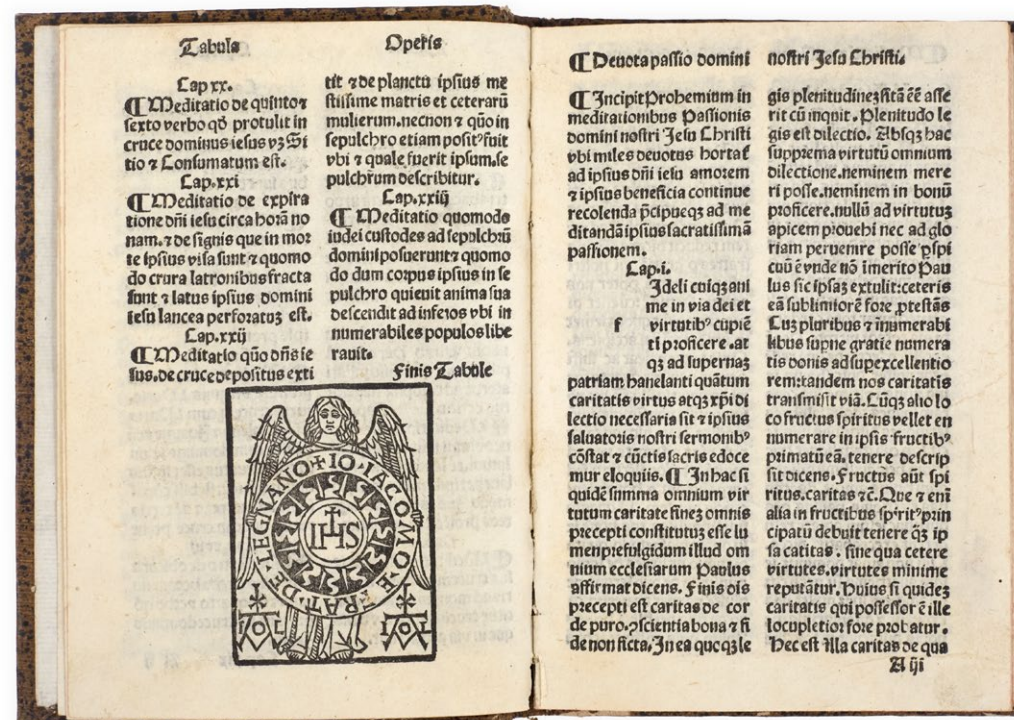 Tabula Operis
Cap xx.
¶ Meditatio de quinto ⁊
sexto verbo qđ protulit in
cruce dominus iesus vʒ Si
tio ⁊ Consumatum est.
Cap.xxi
¶ Meditatio de expira
tione dñi iesu circa horã no
nam. ⁊ de signis que in mor
te ipsius visa sunt ⁊ quomo
do crura latronibus fracta
sunt ⁊ latus ipsius domini
iesu lancea perforatuʒ est.
Cap.xxij
¶ Meditatio quõ dñs ie
sus. de cruce depositus exti
tit ⁊ de planctu ipsius me
stissime matris et ceterarũ
mulierum. necnon ⁊ quõ in
sepulchro etiam positꝰ fuit
vbi ⁊ quale fuerit ipsum. se
pulchrum describitur.
Cap.xxiij
¶ Meditatio quomodo
iudei custodes ad sepulchrũ
domini posuerunt ⁊ quomo
do dum corpus ipsius in se
pulchro quieuit anima sua
descendit ad inferos vbi in
numerabiles populos libe
rauit.
Finis Tabule
+ IO · IACOMO · E · FRAT · DE · LEGNANO
IHS
¶ Deuota passio domini nostri Jesu Christi.
¶ Incipit Prohemium in
meditationibus Passionis
domini nostri Jesu Christi
vbi miles deuotus hortat̃
ad ipsius dñi iesu amorem
⁊ ipsius beneficia continue
recolenda p̃cipueqʒ ad me
ditandã ipsius sacratissimã
passionem.
Cap.i.
f Ideli cuiqʒ ani
me in via dei et
virtutibꝰ cupiẽ
ti proficere. at
qʒ ad supernaʒ
patriam hanelanti quãtum
caritatis virtus atqʒ xp̃i di
lectio necessaria sit ⁊ ipsius
saluatoris nostri sermonibꝰ
cõstat ⁊ cũctis sacris edoce
mur eloquiis. ¶ In hac si
quidẽ summa omnium vir
tutum caritate fineʒ omnis
precepti constitutuʒ esse lu
men prefulgidum illud om
nium ecclesiarum Paulus
affirmat dicens. Finis oĩs
precepti est caritas de cor
de puro. ꝯscientia bona ⁊ fi
de non ficta. In ea quoqʒ le
gis plenitudineʒ sitã eẽ asse
rit cũ inquit. Plenitudo le
gis est dilectio. Absqʒ hac
supprema virtutũ omnium
dilectione. neminem mere
ri posse. neminem in bonũ
proficere. nullũ ad virtutuʒ
apicem prouehi nec ad glo
riam peruenire posse p̱spi
cuũ ẽ vnde nõ ĩmerito Pau
lus sic ipsaʒ extulit: ceteris
eã sublimiorẽ fore p̱testãs
Cuʒ pluribus ⁊ ĩnumerabi
libus supne gratie numera
tis donis ad supexcellentio
rem: tandem nos caritatis
transmisit viã. Cũqʒ alio lo
co fructus spiritus vellet en
numerare in ipsis fructibꝰ
primatũ eã. tenere descrip
sit dicens. Fructus aũt spi
ritus. caritas ⁊c̃. Que ⁊ enĩ
alia in fructibus spiritꝰ prin
cipatũ debuit tenere q̃ʒ ip
sa caritas. sine qua cetere
virtutes. virtutes minime
reputãtur. Huius si quideʒ
caritatis qui possessor ẽ ille
locupletior fore probatur.
Hec est illa caritas de qua
A iij